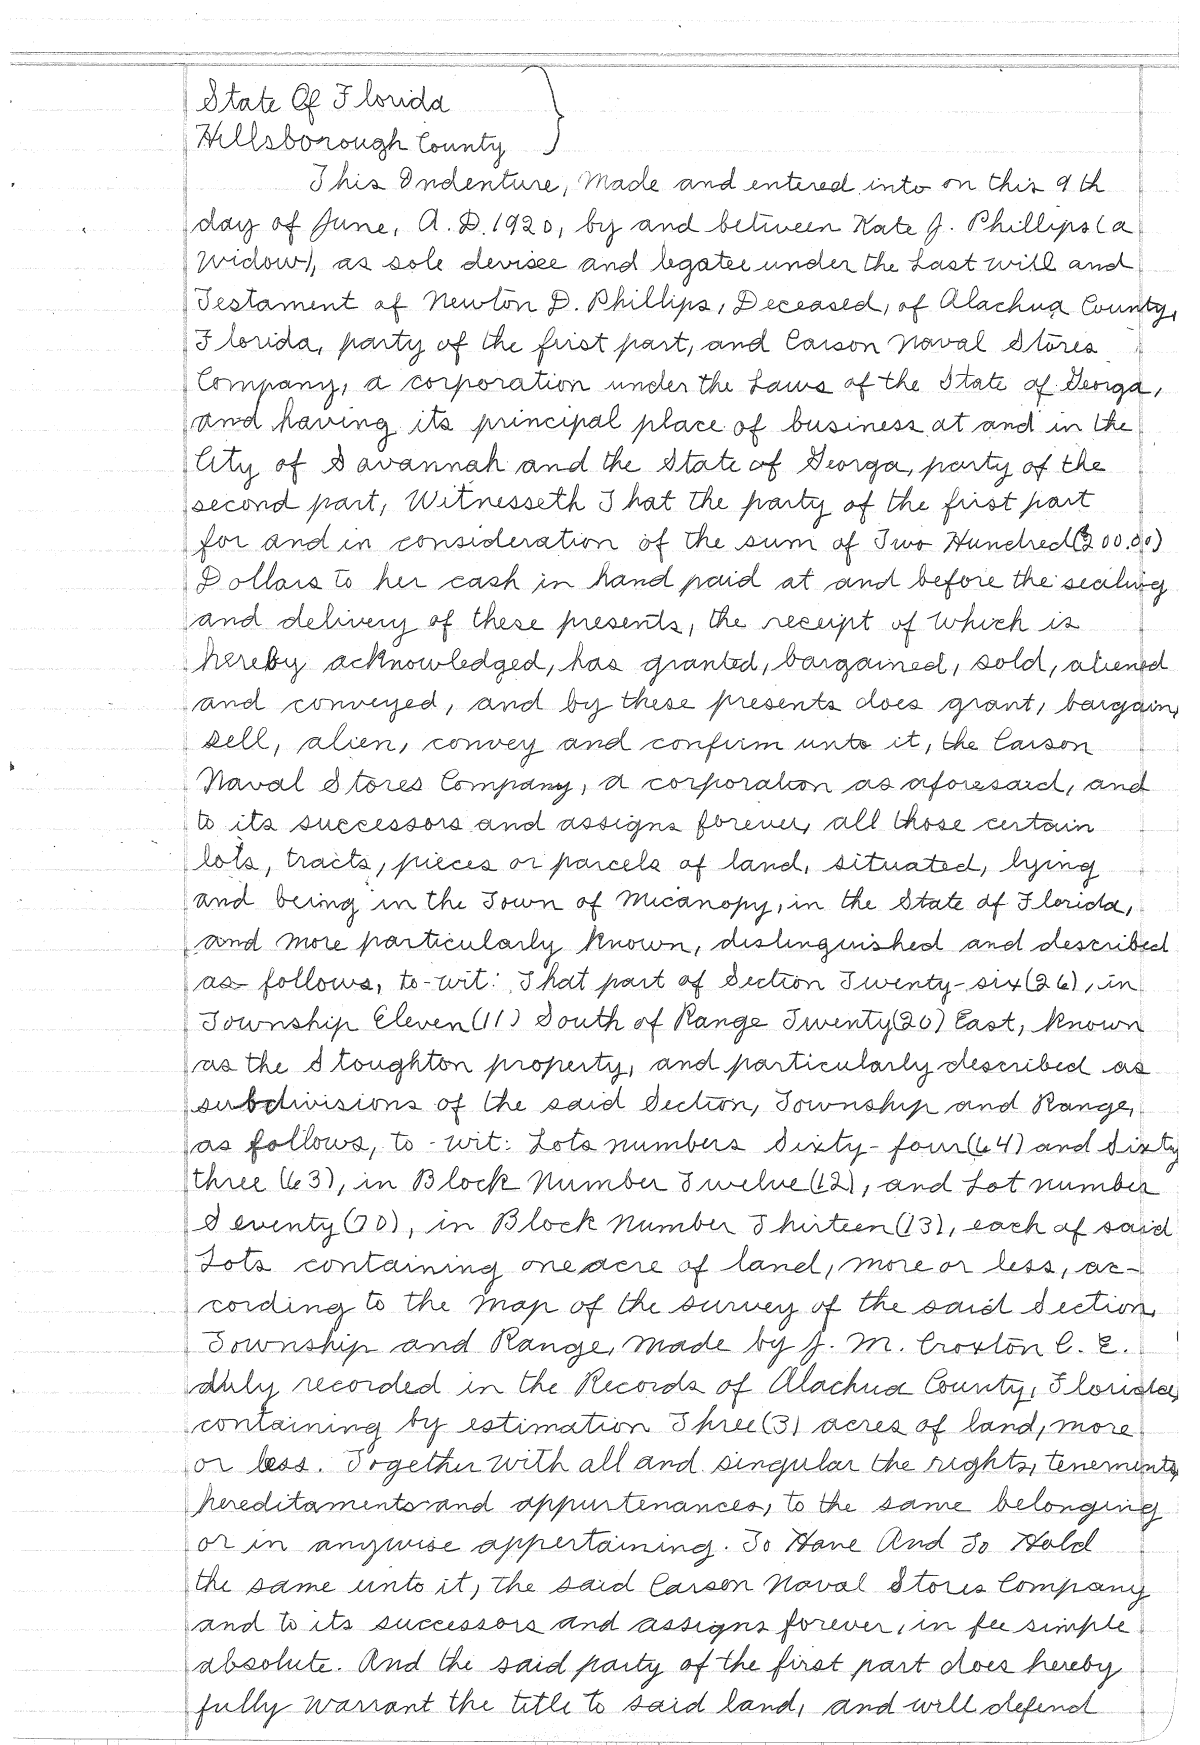 State Of Florida
Hillsborough County
This Indenture, Made and entered into on this 9th
day of June, A. D. 1920, by and between Kate J. Phillips (a
widow), as sole devisee and legatee under the Last will and
Testament of Newton D. Phillips, Deceased, of Alachua County,
Florida, party of the first part, and Carson Naval Stores
Company, a corporation under the Laws of the State of Georga,
and having its principal place of business at and in the
City of Savannah and the State of Georga, party of the
second part, Witnesseth That the party of the first part
for and in consideration of the sum of Two Hundred ($200.00)
Dollars to her cash in hand paid at and before the sealing
and delivery of these presents, the receipt of which is
hereby acknowledged, has granted, bargained, sold, aliened
and conveyed, and by these presents does grant, bargain,
sell, alien, convey and confirm unto it, the Carson
Naval Stores Company, a corporation as aforesaid, and
to its successors and assigns forever, all those certain
lots, tracts, pieces or parcels of land, situated, lying
and being in the Town of Micanopy, in the State of Florida,
and more particularly known, distinguished and described
as follows, to-wit: That part of Section Twenty-six (26), in
Township Eleven (11) South of Range Twenty (20) East, known
as the Stoughton property, and particularly described as
subdivisions of the said Section, Township and Range,
as follows, to-wit: Lots numbers Sixty-four (64) and Sixty
three (63), in Block Number Twelve (12), and Lot number
Seventy (70), in Block Number Thirteen (13), each of said
Lots containing one acre of land, more or less, ac-
cording to the map of the survey of the said Section,
Township and Range, made by J. M. Croxton C. E.
duly recorded in the Records of Alachua County, Florida,
containing by estimation Three (3) acres of land, more
or less. Together with all and singular the rights, tenements,
hereditaments and appurtenances, to the same belonging
or in anywise appertaining. To Have And To Hold
the same unto it, the said Carson Naval Stores Company
and to its successors and assigns forever, in fee simple
absolute. And the said party of the first part does hereby
fully warrant the title to said land, and will defend